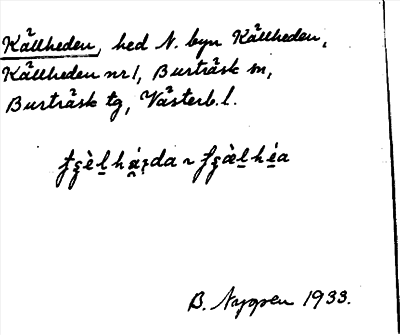 Kållheden, hed N. byn Kållheden,
Kållheden nr 1, Burträsk sn,
Burträsk tg, Västerb. l.
B. Nygren 1933.